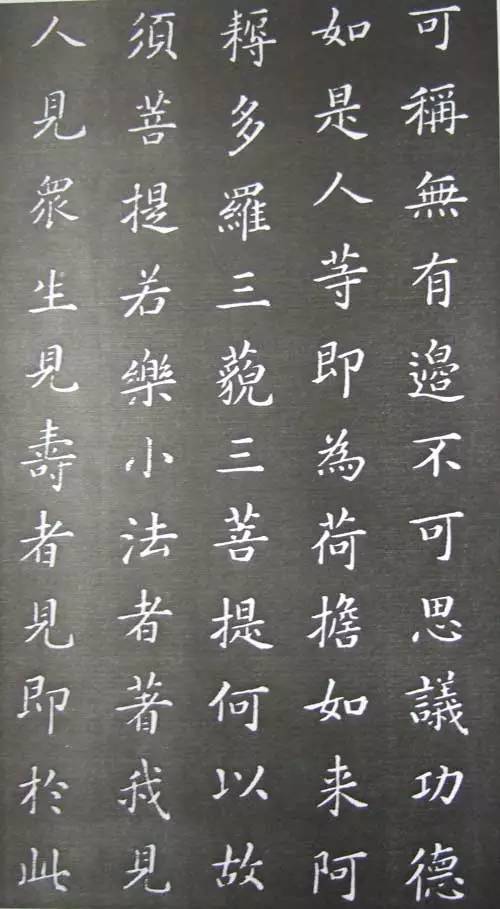 可稱無有邊不可思議功德
如是人等即為荷擔如来阿
耨多羅三藐三菩提何以故
須菩提若樂小法者著我見
人見眾生見壽者見即於此